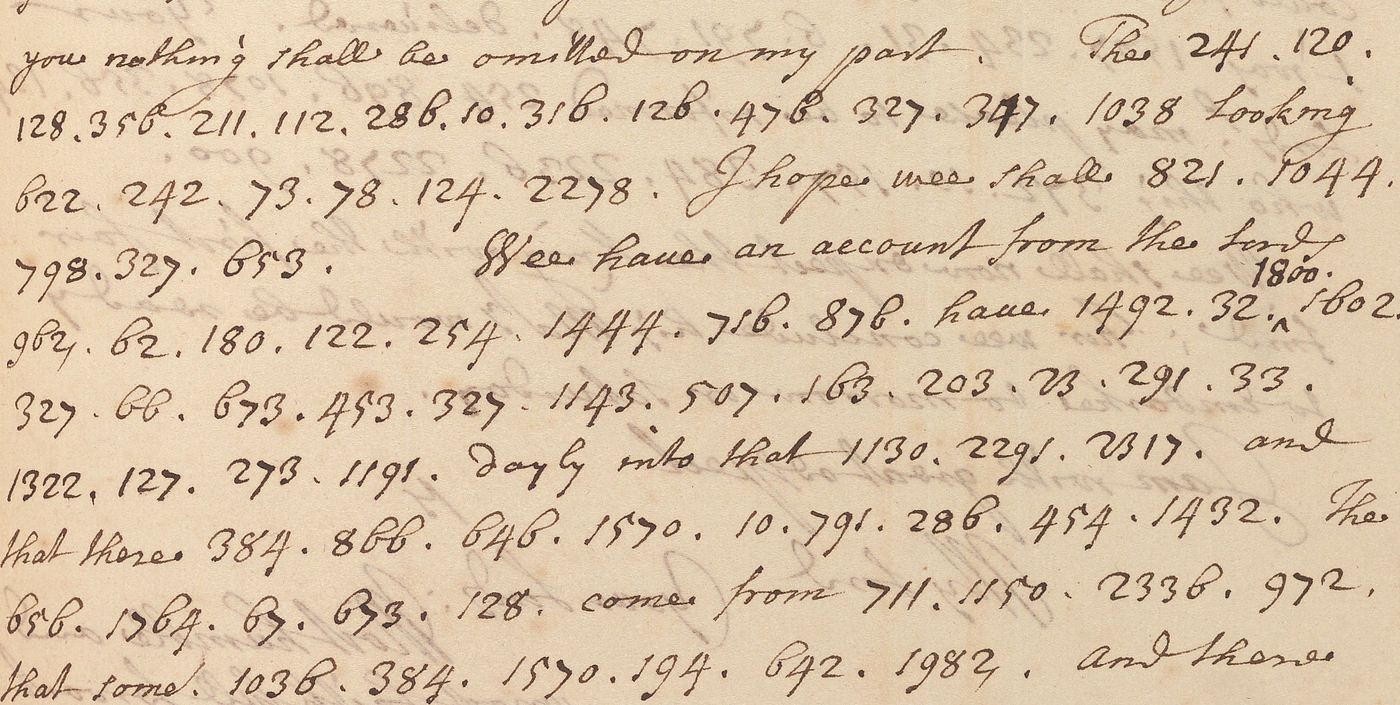 you nothing shall be omitted on my part. The 241. 120.
128. 356. 211. 112. 286. 10. 316. 126. 476. 327. 347. 1038 Looking
622. 242. 73. 78. 124. 2278. I hope wee shall 821. 1044.
798. 327. 653. Wee have an account from the Lords
1800.
962. 62. 180. 122. 254. 1444. 716. 876. have 1492. 32. ^ 1602.
327. 66. 673. 453. 327. 1143. 507. 163. 203. 23. 291. 33.
1322. 127. 273. 1191. dayly into that 1130. 2291. 2317. and
that there 384. 866. 646. 1570. 10. 791. 286. 454. 1432. The
656. 1764. 67. 673. 128. come from 711. 1150. 2336. 972.
that some. 1036. 384. 1570. 194. 642. 1982. and there